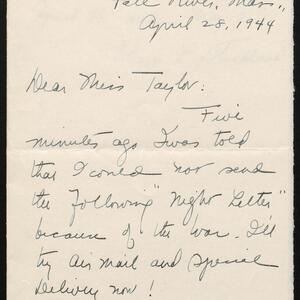 Fall River, Mass.,
April 28, 1944
Dear Miss Taylor:
Five
minutes ago I was told
that I could not send
the following "Night Letter"
because of the War. I'll
try Air Mail and Special
Delivery now!